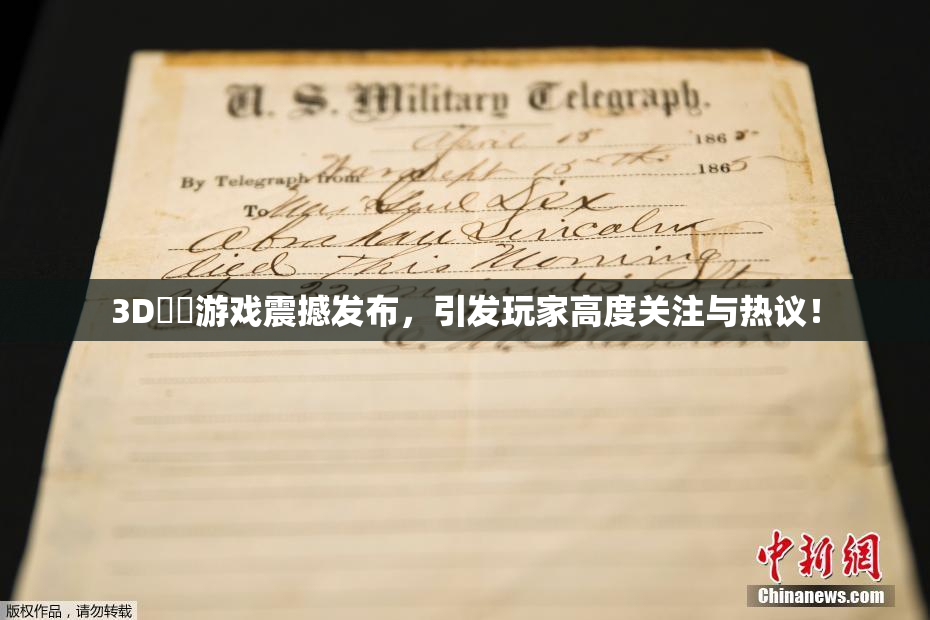 U. S. Military Telegraph.
April 15 1865
By Telegraph from War Dept 15th 1865
To Maj Genl Dix
Abraham Lincoln
died This Morning
22 minutes after
3D游戏震撼发布，引发玩家高度关注与热议！
中新网
Chinanews.com
版权作品，请勿转载